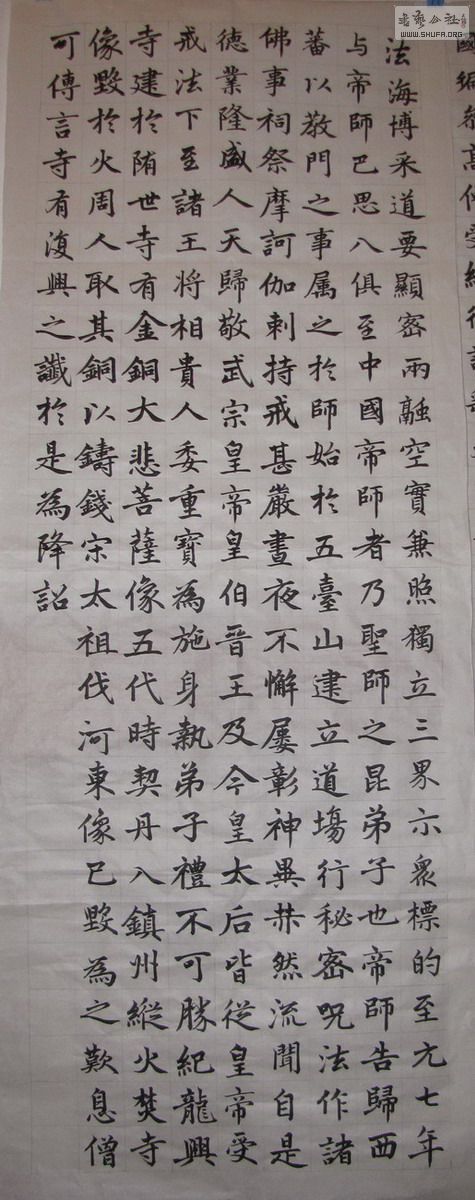 书艺公社
WWW.SHUFA.ORG
法海博采道要顯密兩融空實兼照獨立三界示衆標的至元七年
与帝師巴思八俱至中國帝師者乃聖師之昆弟子也帝師告歸西
蕃以教門之事属之於師始於五臺山建立道場行秘密咒法作諸
佛事祠祭摩訶伽剌持戒甚嚴晝夜不懈屢彰神異赫然流聞自是
德業隆盛人天歸敬武宗皇帝皇伯晋王及今皇太后皆從皇帝受
戒法下至諸王将相貴人委重寶為施身執弟子禮不可勝紀龍興
寺建於隋世寺有金銅大悲菩薩像五代時契丹入鎮州縱火焚寺
像毁於火周人取其銅以鑄錢宋太祖伐河東像已毁為之歎息僧
可傳言寺有復興之讖於是為降詔